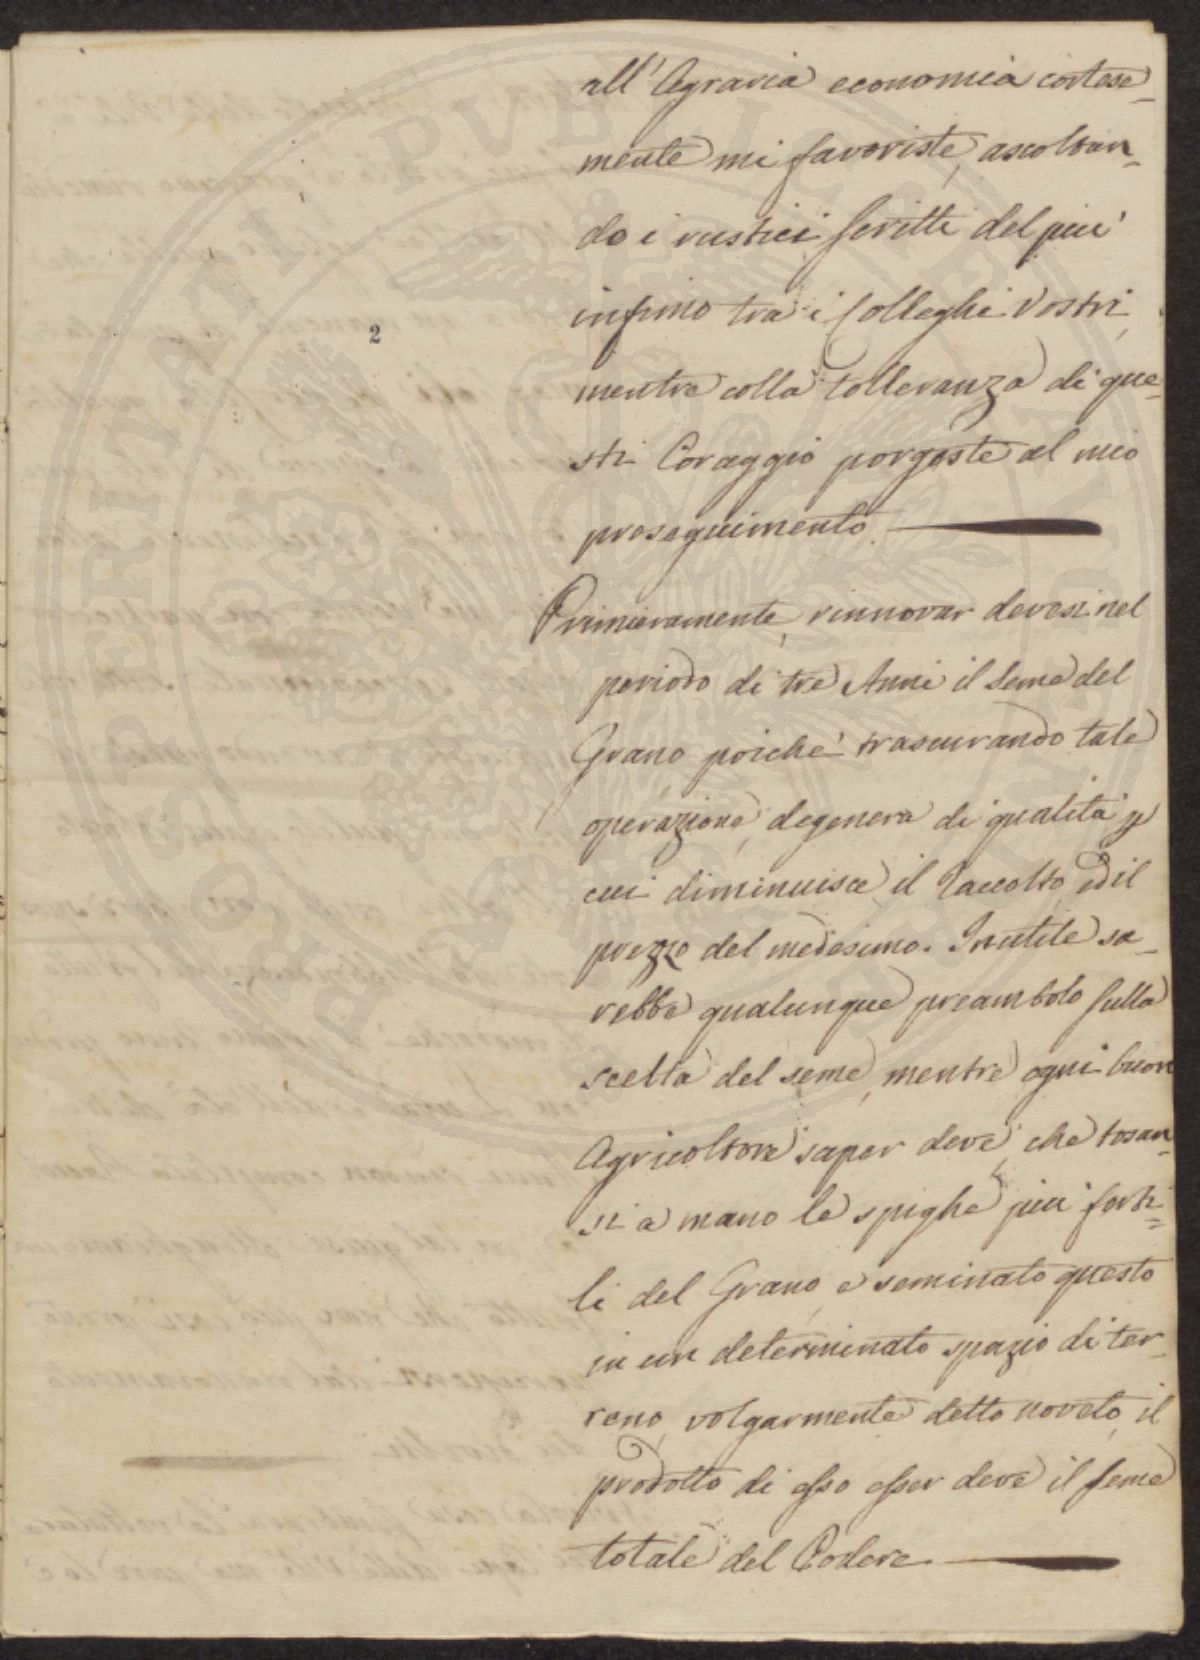 all'Agraria economia cortese-
mente mi favoriste, ascoltan-
do i rustici scritti del più
infimo tra i Colleghi Vostri,
mentre colla tolleranza di que-
sti Coraggio porgeste al mio
proseguimento.
2
Primieramente, rinnovar devesi nel
periodo di tre Anni il seme del
Grano poichè trascurando tale
operazione, degenera di qualità p
cui diminuisce il Raccolto, ed il
prezzo del medesimo. Inutile sa-
rebbe qualunque preambolo sulla
scelta del seme, mentre ogni buon
Agricoltore saper deve, che tosan-
si a mano le spighe più ferti-
li del Grano, e seminato questo
in un determinato spazio di ter-
reno, volgarmente detto noveto, il
prodotto di esso esser deve il seme
totale del Podere.
PROSPERITATI PUBLICAE